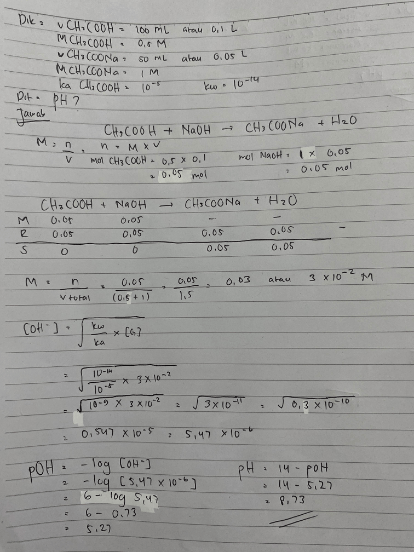 Dik : v CH₃COOH = 100 mL atau 0,1 L
M CH₃COOH = 0,5 M
v CH₃COONa = 50 mL atau 0.05 L
M CH₃COONa = 1 M
ka CH₃COOH = 10⁻⁵ kw = 10⁻¹⁴
Dit = PH ?
Jawab
CH₃COOH + NaOH → CH₃COONa + H₂O
M = n/v n = M x v
mol CH₃COOH = 0,5 x 0,1 mol NaOH = 1 x 0,05
= 0,05 mol = 0.05 mol
CH₃COOH + NaOH → CH₃COONa + H₂O
M 0.05 0,05 - -
R 0.05 0,05 0,05 0,05 -
S 0 0 0.05 0.05
M = n/v total = 0.05/(0.5+1) = 0.05/1,5 = 0,03 atau 3 x 10⁻² M
[OH⁻] = √kw/ka x [G]
= √10⁻¹⁴/10⁻⁵ x 3 x 10⁻²
= √10⁻⁹ x 3 x 10⁻² = √3 x 10⁻¹¹ = √0,3 x 10⁻¹⁰
= 0,547 x 10⁻⁵ = 5,47 x 10⁻⁶
pOH = -log [OH⁻] pH = 14 - pOH
= -log [5,47 x 10⁻⁶] = 14 - 5,27
= 6 - log 5,47 = 8,73
= 6 - 0,73
= 5,27